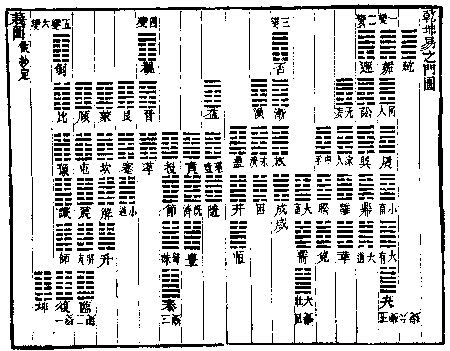 乾坤易之門圖
一變
姤
同人
履
小畜
大有
夬
二變
遯
訟
巽
鼎
大過
无妄
家人
離
革
中孚
睽
兌
大畜
需
大壯
三變
否
漸
旅
咸
渙
未濟
困
蠱
井
恆
益
噬嗑
隨
賁
既濟
豐
損
節
歸妹
泰
四變
觀
晉
萃
艮
蹇
小過
蒙
坎
解
升
頤
屯
震
臨
五變六變
剝
比
豫
謙
師
復
坤